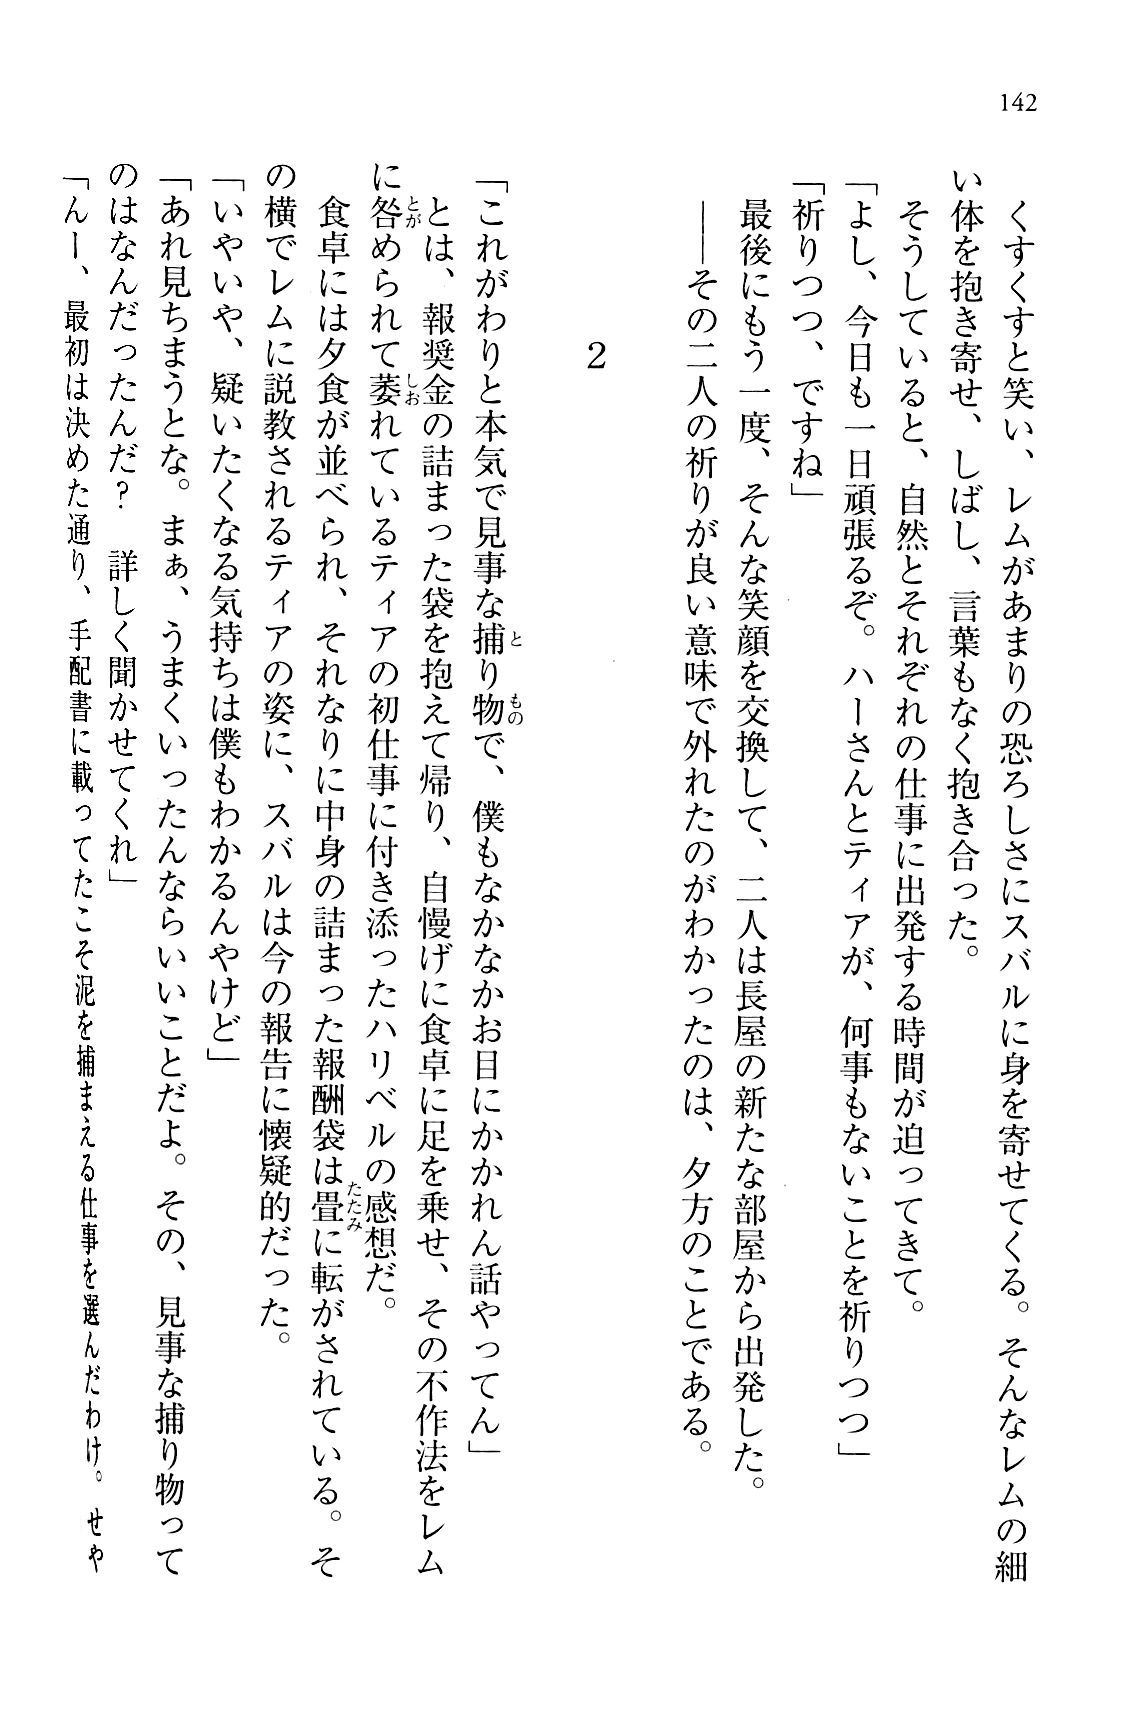 142
くすくすと笑い、レムがあまりの恐ろしさにスバルに身を寄せてくる。そんなレムの細
い体を抱き寄せ、しばし、言葉もなく抱き合った。
そうしていると、自然とそれぞれの仕事に出発する時間が迫ってきて。
「よし、今日も一日頑張るぞ。ハーさんとティアが、何事もないことを祈りつつ」
「祈りつつ、ですね」
最後にもう一度、そんな笑顔を交換して、二人は長屋の新たな部屋から出発した。
――その二人の祈りが良い意味で外れたのがわかったのは、夕方のことである。
2
「これがわりと本気で見事な捕り物で、僕もなかなかお目にかかれん話やってん」
とは、報奨金の詰まった袋を抱えて帰り、自慢げに食卓に足を乗せ、その不作法をレム
に咎められて萎れているティアの初仕事に付き添ったハリベルの感想だ。
食卓には夕食が並べられ、それなりに中身の詰まった報酬袋は畳に転がされている。そ
の横でレムに説教されるティアの姿に、スバルは今の報告に懐疑的だった。
「いやいや、疑いたくなる気持ちは僕もわかるんやけど」
「あれ見ちまうとな。まぁ、うまくいったんならいいことだよ。その、見事な捕り物って
のはなんだったんだ？　詳しく聞かせてくれ」
「んー、最初は決めた通り、手配書に載ってたこそ泥を捕まえる仕事を選んだわけ。せや